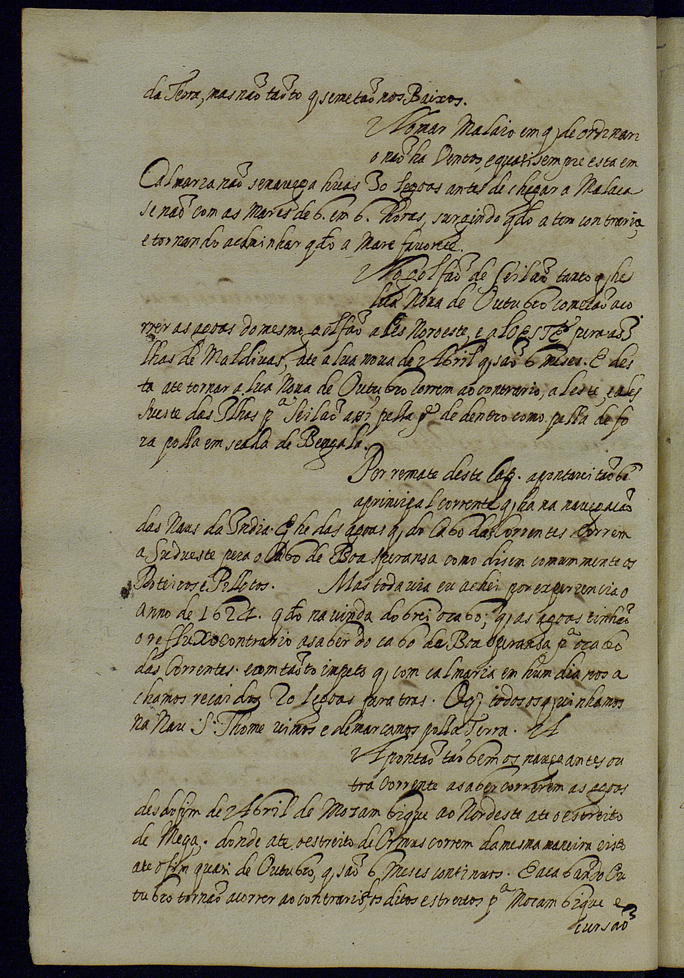 da Terra, mas não tãoto q̃ se metão nos Baixos.
No mar Malaio em q̃ de ordinari
o não ha Ventos, e quasi sempre esta em
Calmaria não se navega huas 30 legoas antes de chegar a Malaca
se não com as Mares de 6. em 6. horas, surgindo qdo a tem contraria,
e tornando a caminhar qdo a Mare favorece.
No golfão de Ceilão tanto q̃ he
lua Nova de Outubro começão a co
rrer as agoas do mesmo golfão a les Noroeste, e a LOESTE, pera as
Ilhas de Maldivas, ate a lua nova de Abril q̃ são 6 meses. E des
ta ate tornar a lua Nova de Outubro correm ao contrario, a leste, e a les
sueste das Ilhas pª Ceilão assi pella pᵉ de dentro como pella de fo
ra polla emseada de Bengala.
Por remate deste Cap. apontarei tãobẽ
a principal corrente q̃ ha na navegação
das Naus da India. E he das agoas q̃ do Cabo das Correntes correm
a Sudueste pera o Cabo de Boa Speransa como disem commummente os
Roteiros e Pillotos. Mas todavia eu achei por experiencia o
anno de 1621. qdo na vinda dobrei o cabo; q̃ as agoas tinhão
o refluxo contrario a saber do cabo de Boa Speransa pª o cabo
das Correntes. e com tãoto impeto q̃ com calmaria em hum dia nos a
chamos recaidos 20 legoas para tras. O q̃ todos os q̃ vinhamos
na Nau S. Thome vimos e demarcamos polla Terra.
Apontão tãobem os navegantes ou
tra corrente a saber correrem as agoas
desdo fim de Abril de Mozambique ao Nordeste ate o estreito
de Mega. donde ate o estreito de Ormus correm da mesma maneira e isto
ate o fim quasi de Outubro, q̃ são 6 Meses continuos. E acabando Ou
tubro tornão a correr ao contrario dos ditos estreitos pª Mozambique e
cursão